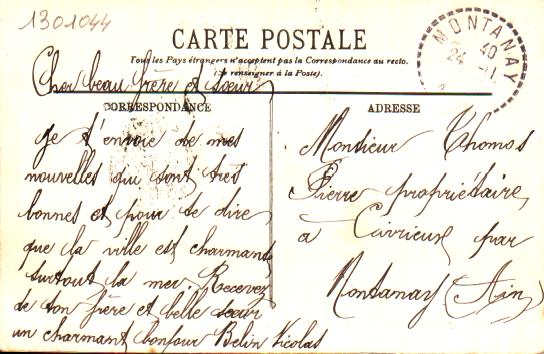 1301044
CARTE POSTALE
Tous les Pays étrangers n'acceptent pas la Correspondance au recto.
(Se renseigner à la Poste).
MONTANAY
Cher beau frère et sœur
CORRESPONDANCE
Je t'envoie de mes
nouvelles qui sont très
bonnes et pour te dire
que la ville est charmante
surtout la mer. Recevez
de ton frère et belle sœur
un charmant bonjour Belin Nicolas
ADRESSE
Monsieur Thomas
Pierre propriétaire
a Civrieux par
Montanay (Ain)